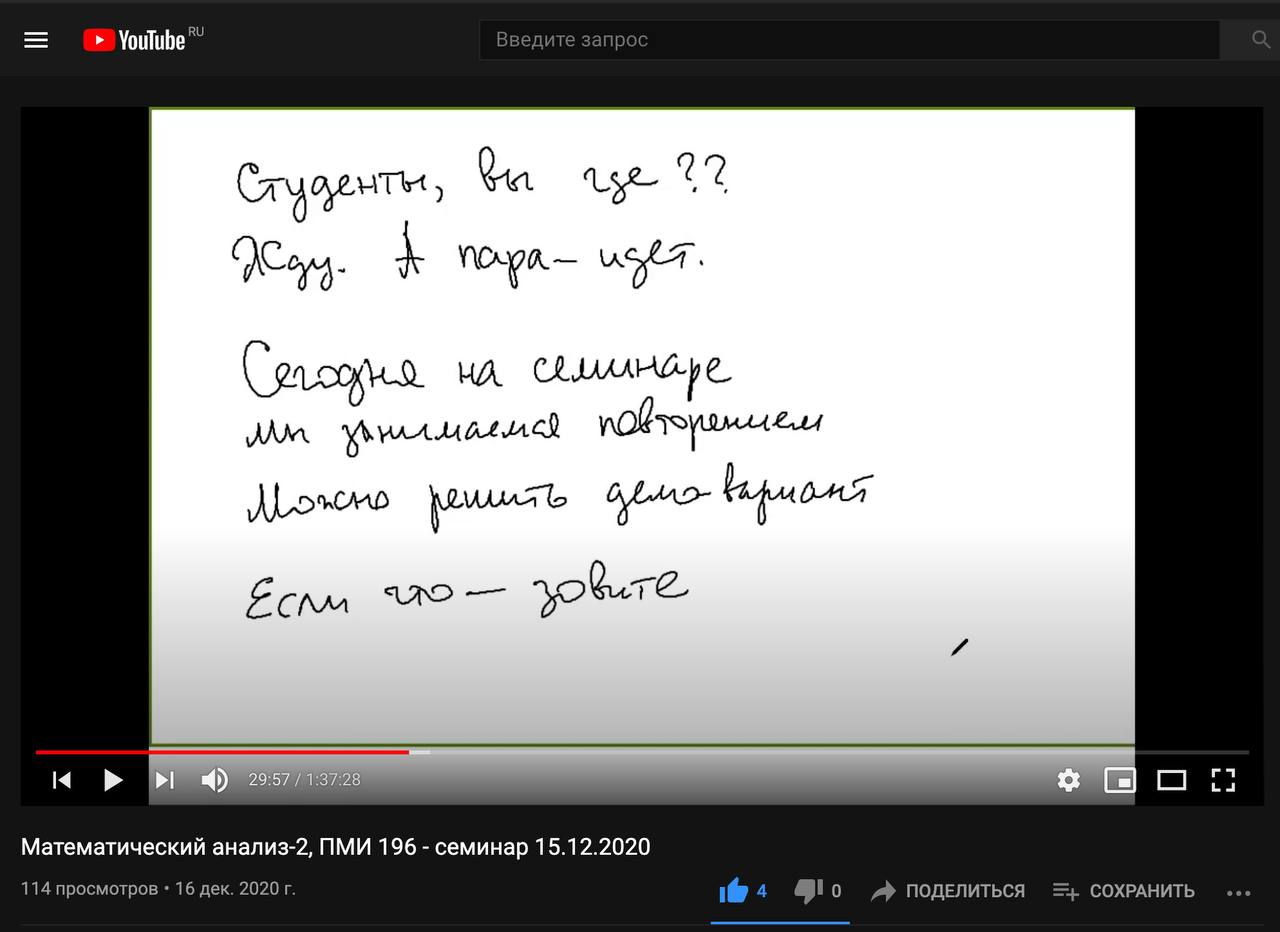 YouTube RU
Введите запрос
Студенты, вы где??
Жду. А пара – идет.
Сегодня на семинаре
мы занимаемся повторением
Можно решить демо-вариант
Если что — зовите
29:57 / 1:37:28
Математический анализ-2, ПМИ 196 - семинар 15.12.2020
114 просмотров • 16 дек. 2020 г.
4 0 ПОДЕЛИТЬСЯ СОХРАНИТЬ